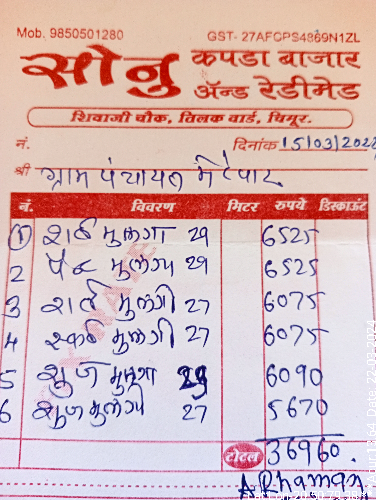 Mob. 9850501280 GST- 27AFCPS4869N1ZL
सोनु कपडा बाजार
ॲन्ड रेडीमेड
शिवाजी चौक, तिलक वार्ड, चिमूर.
नं. दिनांक 15/03/202
श्री ग्राम पंचायत
नं. विवरण मिटर रुपये डिस्काऊंट
1 शर्ट मुलगा 29 6525
2 पॅन्ट मुलगा 29 6525
3 शर्ट मुलगी 27 6075
4 स्कर्ट मुलगी 27 6075
5 शूज मुलगा 29 6090
6 शूज मुलगी 27 5670
टोटल 36960.